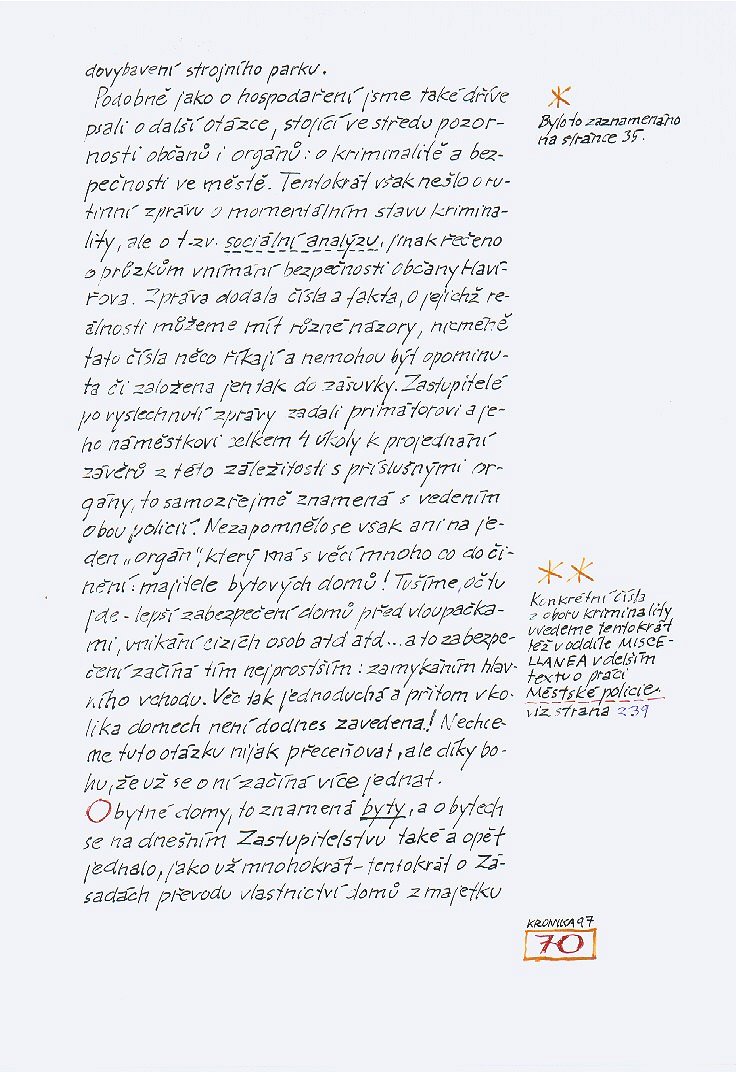 dovybavení strojního parku.
Podobně jako o hospodaření jsme také dříve
psali o další otázce, stojící ve středu pozor-
nosti občanů i orgánů: o kriminalitě a bez-
pečnosti ve městě. Tentokrát však nešlo o ru-
tinní zprávu o momentálním stavu krimina-
lity, ale o t.zv. sociální analýzu, jinak řečeno
o průzkům vnímání bezpečnosti občany Haví-
řova. Zpráva dodala čísla a fakta, o jejichž re-
álnosti můžeme mít různé názory, nicméně
tato čísla něco říkají a nemohou být opominu-
ta či založena jen tak do zásuvky. Zastupitelé
po vyslechnutí zprávy zadali primátorovi a je-
ho náměstkovi celkem 4 úkoly k projednání
závěrů z této záležitosti s příslušnými or-
gány, to samozřejmě znamená s vedením
obou policií. Nezapomnělo se však ani na je-
den „orgán", který má s věcí mnoho co do či-
nění: majitele bytových domů! Tušíme, oč tu
jde - lepší zabezpečení domů před vloupačka-
mi, vnikání cizích osob atd atd... a to zabezpe-
čení začíná tím nejprostším: zamykáním hlav-
ního vchodu. Věc tak jednoduchá a přitom v ko-
lika domech není dodnes zavedena! Nechce-
me tuto otázku nijak přeceňovat, ale díky bo-
hu, že už se o ní začíná více jednat.
Obytné domy, to znamená byty, a o bytech
se na dnešním Zastupitelstvu také a opět
jednalo, jako už mnohokrát - tentokrát o Zá-
sadách převodu vlastnictví domů z majetku
*
Bylo to zaznamenáno
na stránce 35.
**
Konkrétní čísla
z oboru kriminality
uvedeme tentokrát
též v oddíle MISCE-
LLANEA v delším
textu o práci
Městské policie
viz strana 239
KRONIKA 97
70